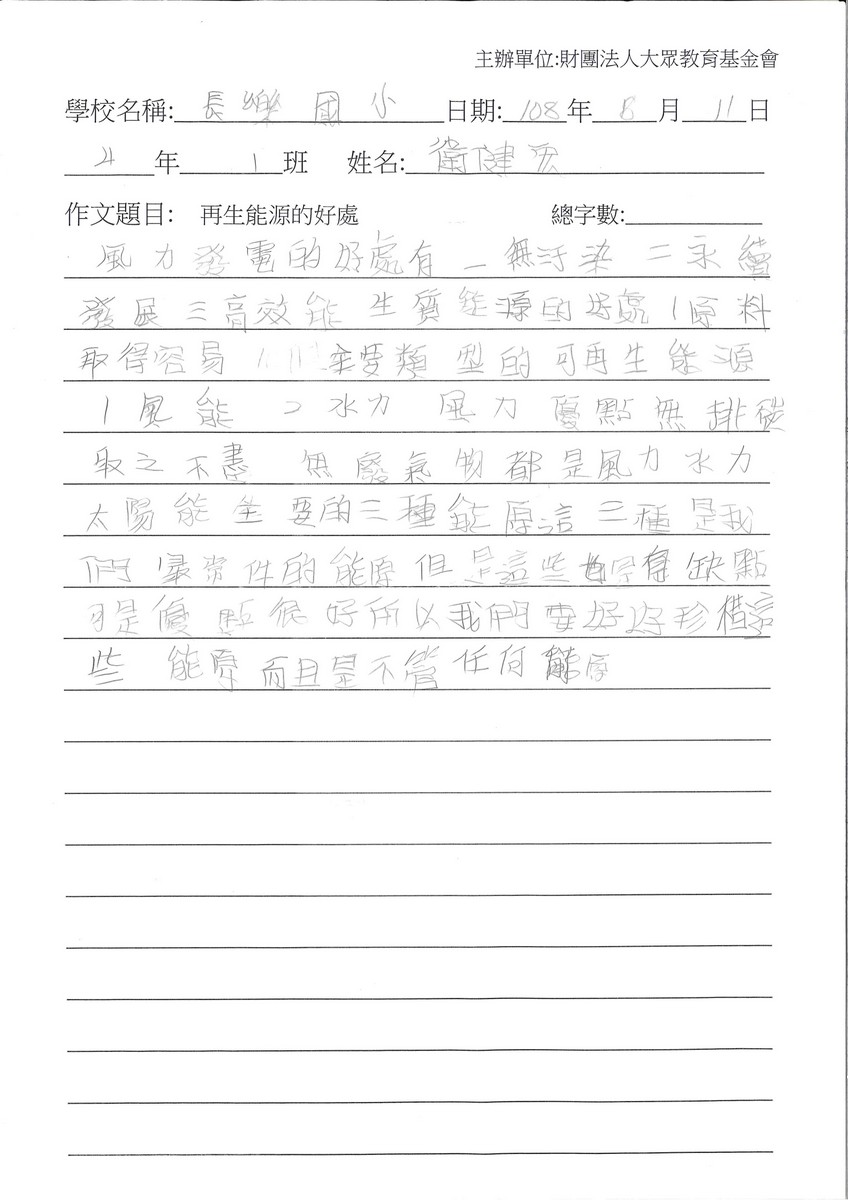 主辦單位:財團法人大眾教育基金會
學校名稱:長樂國小日期:108年8月11日
4年1班 姓名:衛健宏
作文題目: 再生能源的好處 總字數:
風力發電的好處有 一無汙染 二永續
發展 三高效能 生質能源的好處 1原料
取得容易 主要類型的可再生能源
1風能 2水力 風力 優點無排碳
取之不盡 無廢氣物都是風力水力
太陽能主要的三種能原這三種是我
們最常件的能原但是這些都是有缺點
可是優點很好所以我們要好好珍惜這
些 能原而且是不管任何能原